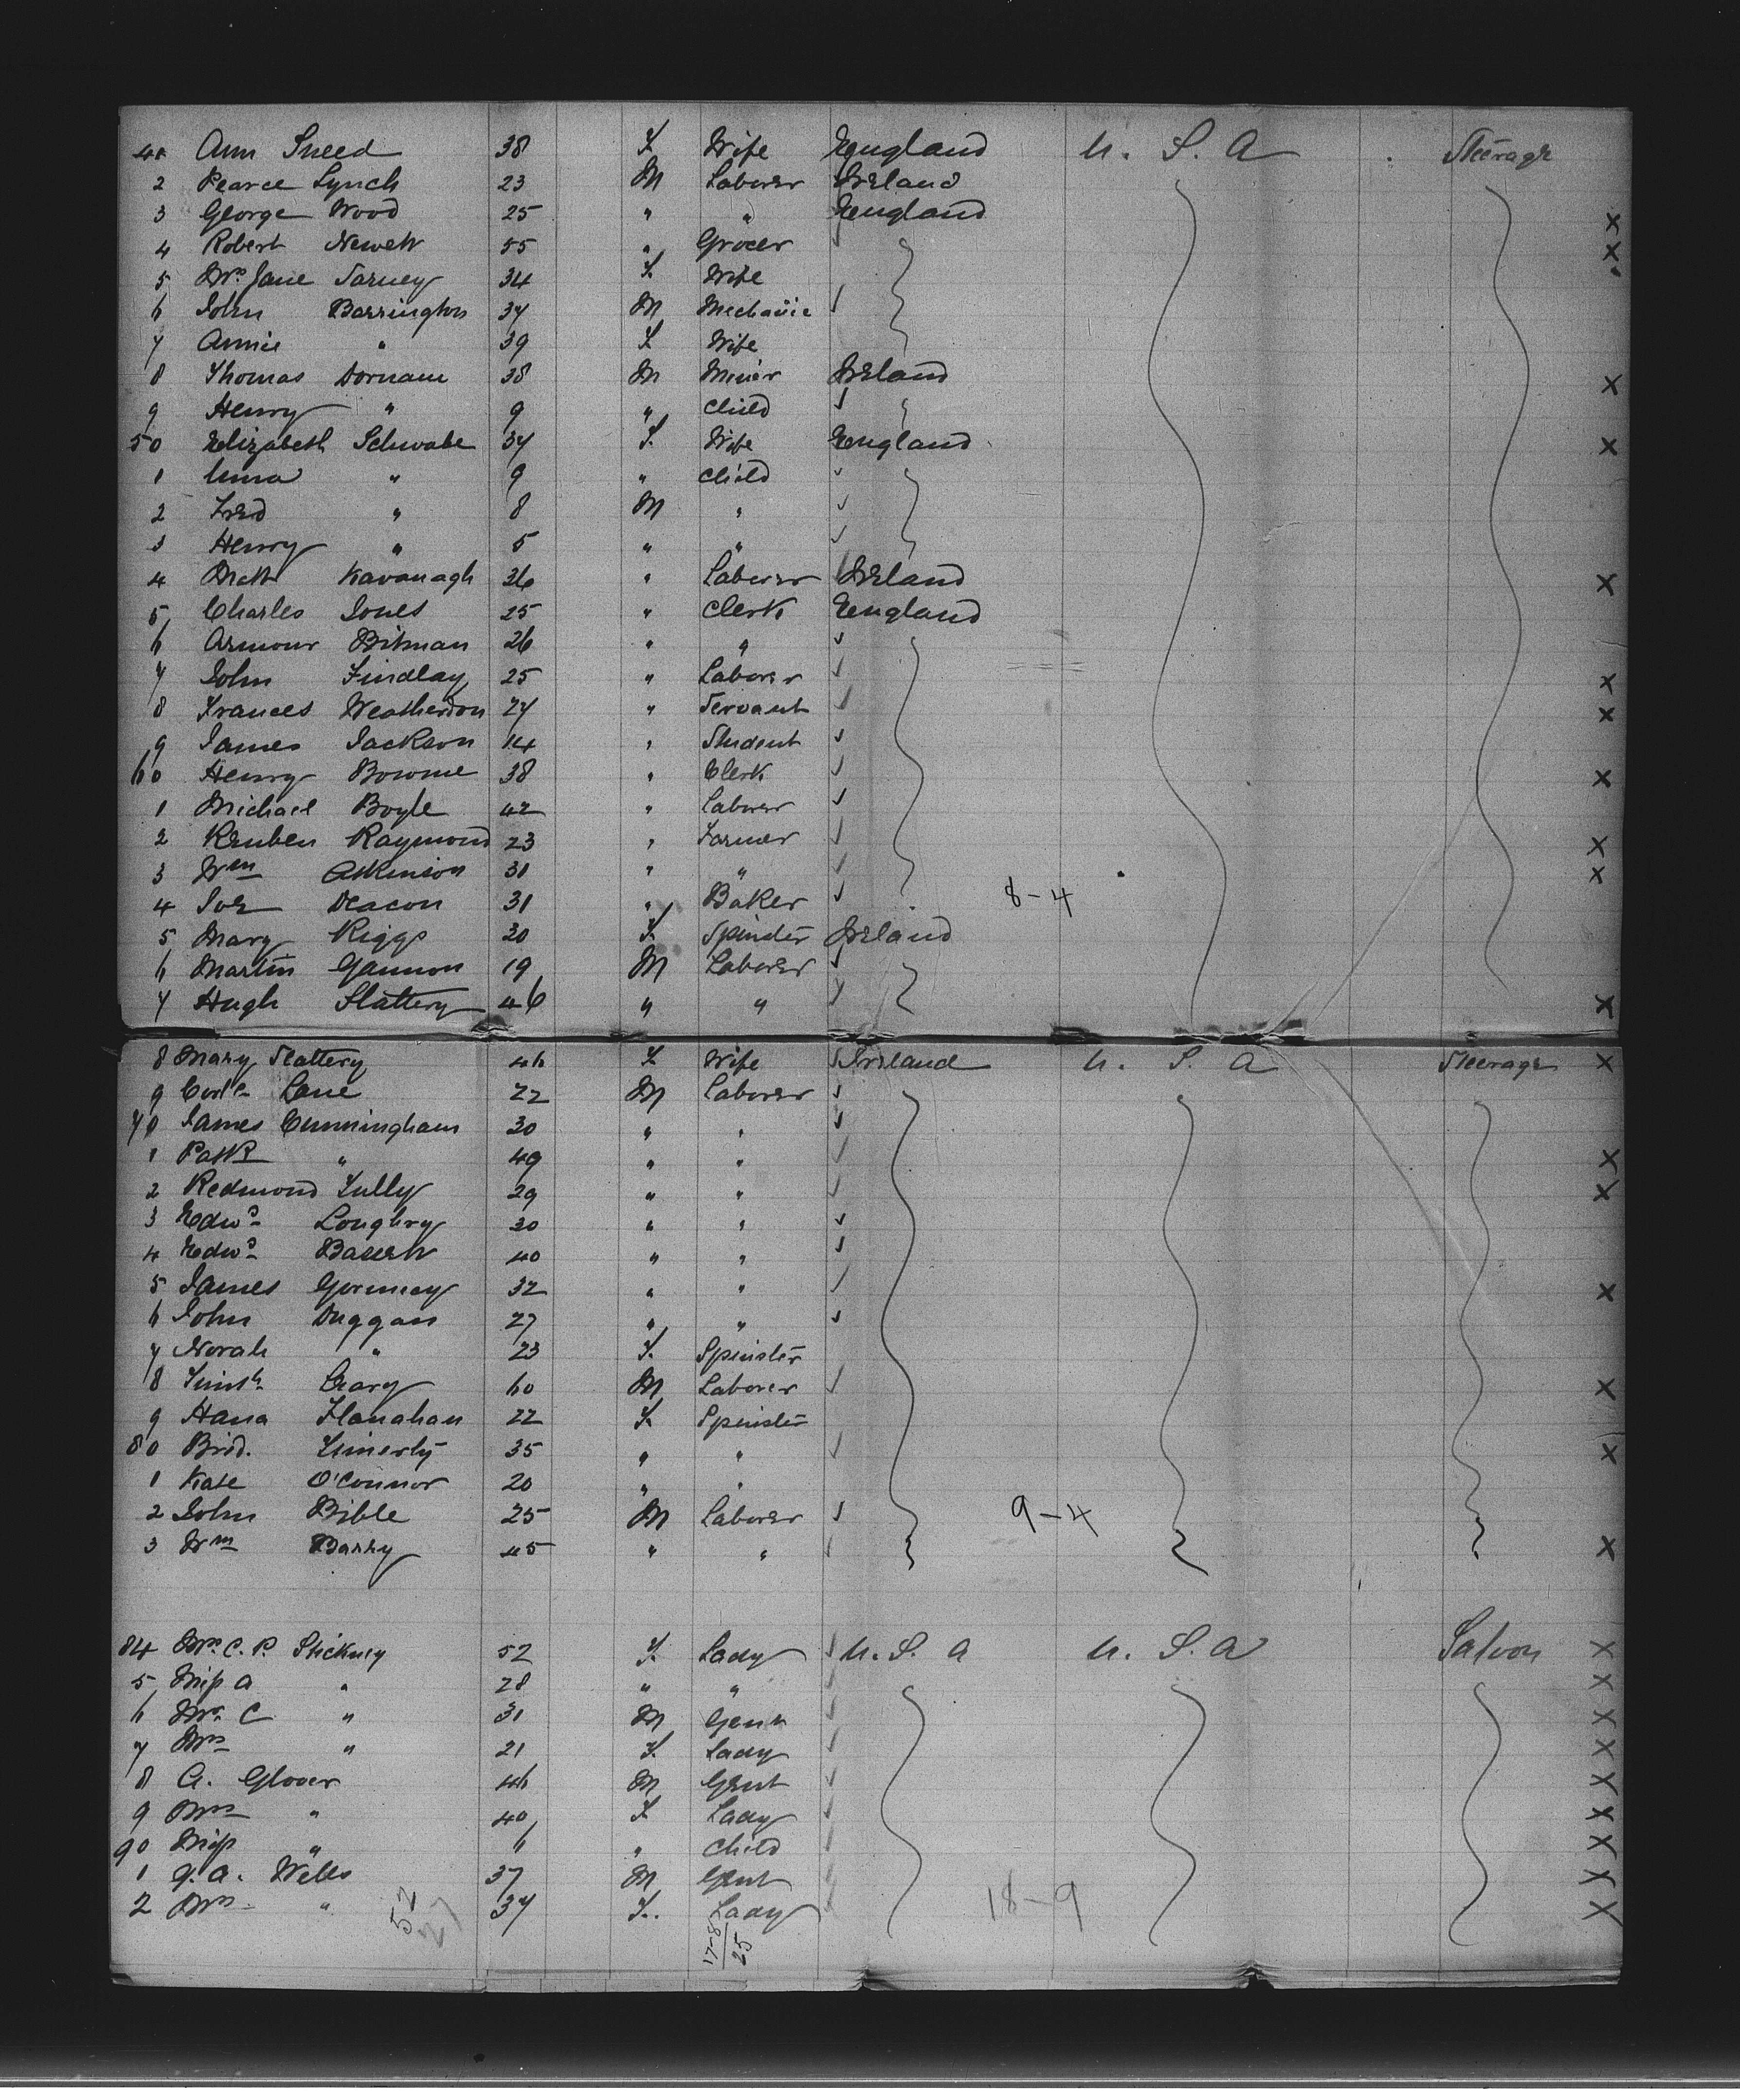 41 Ann Sneed 38 F. Wife England U. S. A Steerage
2 Pearce Lynch 23 M Laborer Ireland
3 George Wood 25 " " England X
4 Robert Newett 55 " Grocer X
5 Mrs Jane 34 F. Wife
6 John Barrington 37 M Mechanic
7 Annie " 39 F. Wife
8 Thomas Dornam 38 M Miner Ireland X
9 Henry " 9 " Child
50 Elizabeth Schwabe 37 F. Wife England X
1 " 9 " Child
2 Fred " 8 M "
3 Henry " 5 " "
4 Matt Kavanagh 36 " Laborer Ireland X
5 Charles Jones 25 " Clerk England
6 Armour Pitman 26 " "
7 John Findlay 25 " Laborer X
8 Frances Weatherdon 27 " Servant X
9 James Jackson 14 " Student
60 Henry Bowme 38 " Clerk X
1 Michael Boyle 42 " Laborer
2 Reuben Raymond 23 " Farmer X
3 Wm Atkinson 31 " " X
4 Joe Deacon 31 " Baker 8-4
5 Mary Riggs 30 F. Spinster Ireland
6 Martin Gannon 19 M Laborer
7 Hugh Slattery 46 " " X
8 Mary Slattery 46 F. Wife Ireland U. S. A Steerage X
9 Corls Lane 22 M Laborer
70 James Cunningham 30 " "
1 Patk " 49 " " X
2 Redmond Tully 29 " " X
3 Edwd Loughry 30 " "
4 Edwd 40 " "
5 James Gormley 32 " " X
6 John Duggan 27 " "
7 Norah " 23 F. Spinster
8 Timth Leary 60 M Laborer X
9 Hana Flanahan 22 F. Spinster
80 Brid. 35 " " X
1 Kate O'Connor 20 " "
2 John Bible 25 M Laborer 9-4
3 Wm Barry 45 " " X
84 Mrs C. P. Stickney 52 F. Lady U. S. A U. S. A Saloon X
5 Miss A " 28 " " X
6 Mr. C " 31 M Gent X
7 Mrs " 21 F. Lady X
8 G. Glover 46 M Gent X
9 Mrs " 40 F. Lady X
90 Miss " 6 " Child X
1 G. A. Wells 37 M Gent X
2 Mrs " 37 F. Lady 18-9 X
52
17-8
25